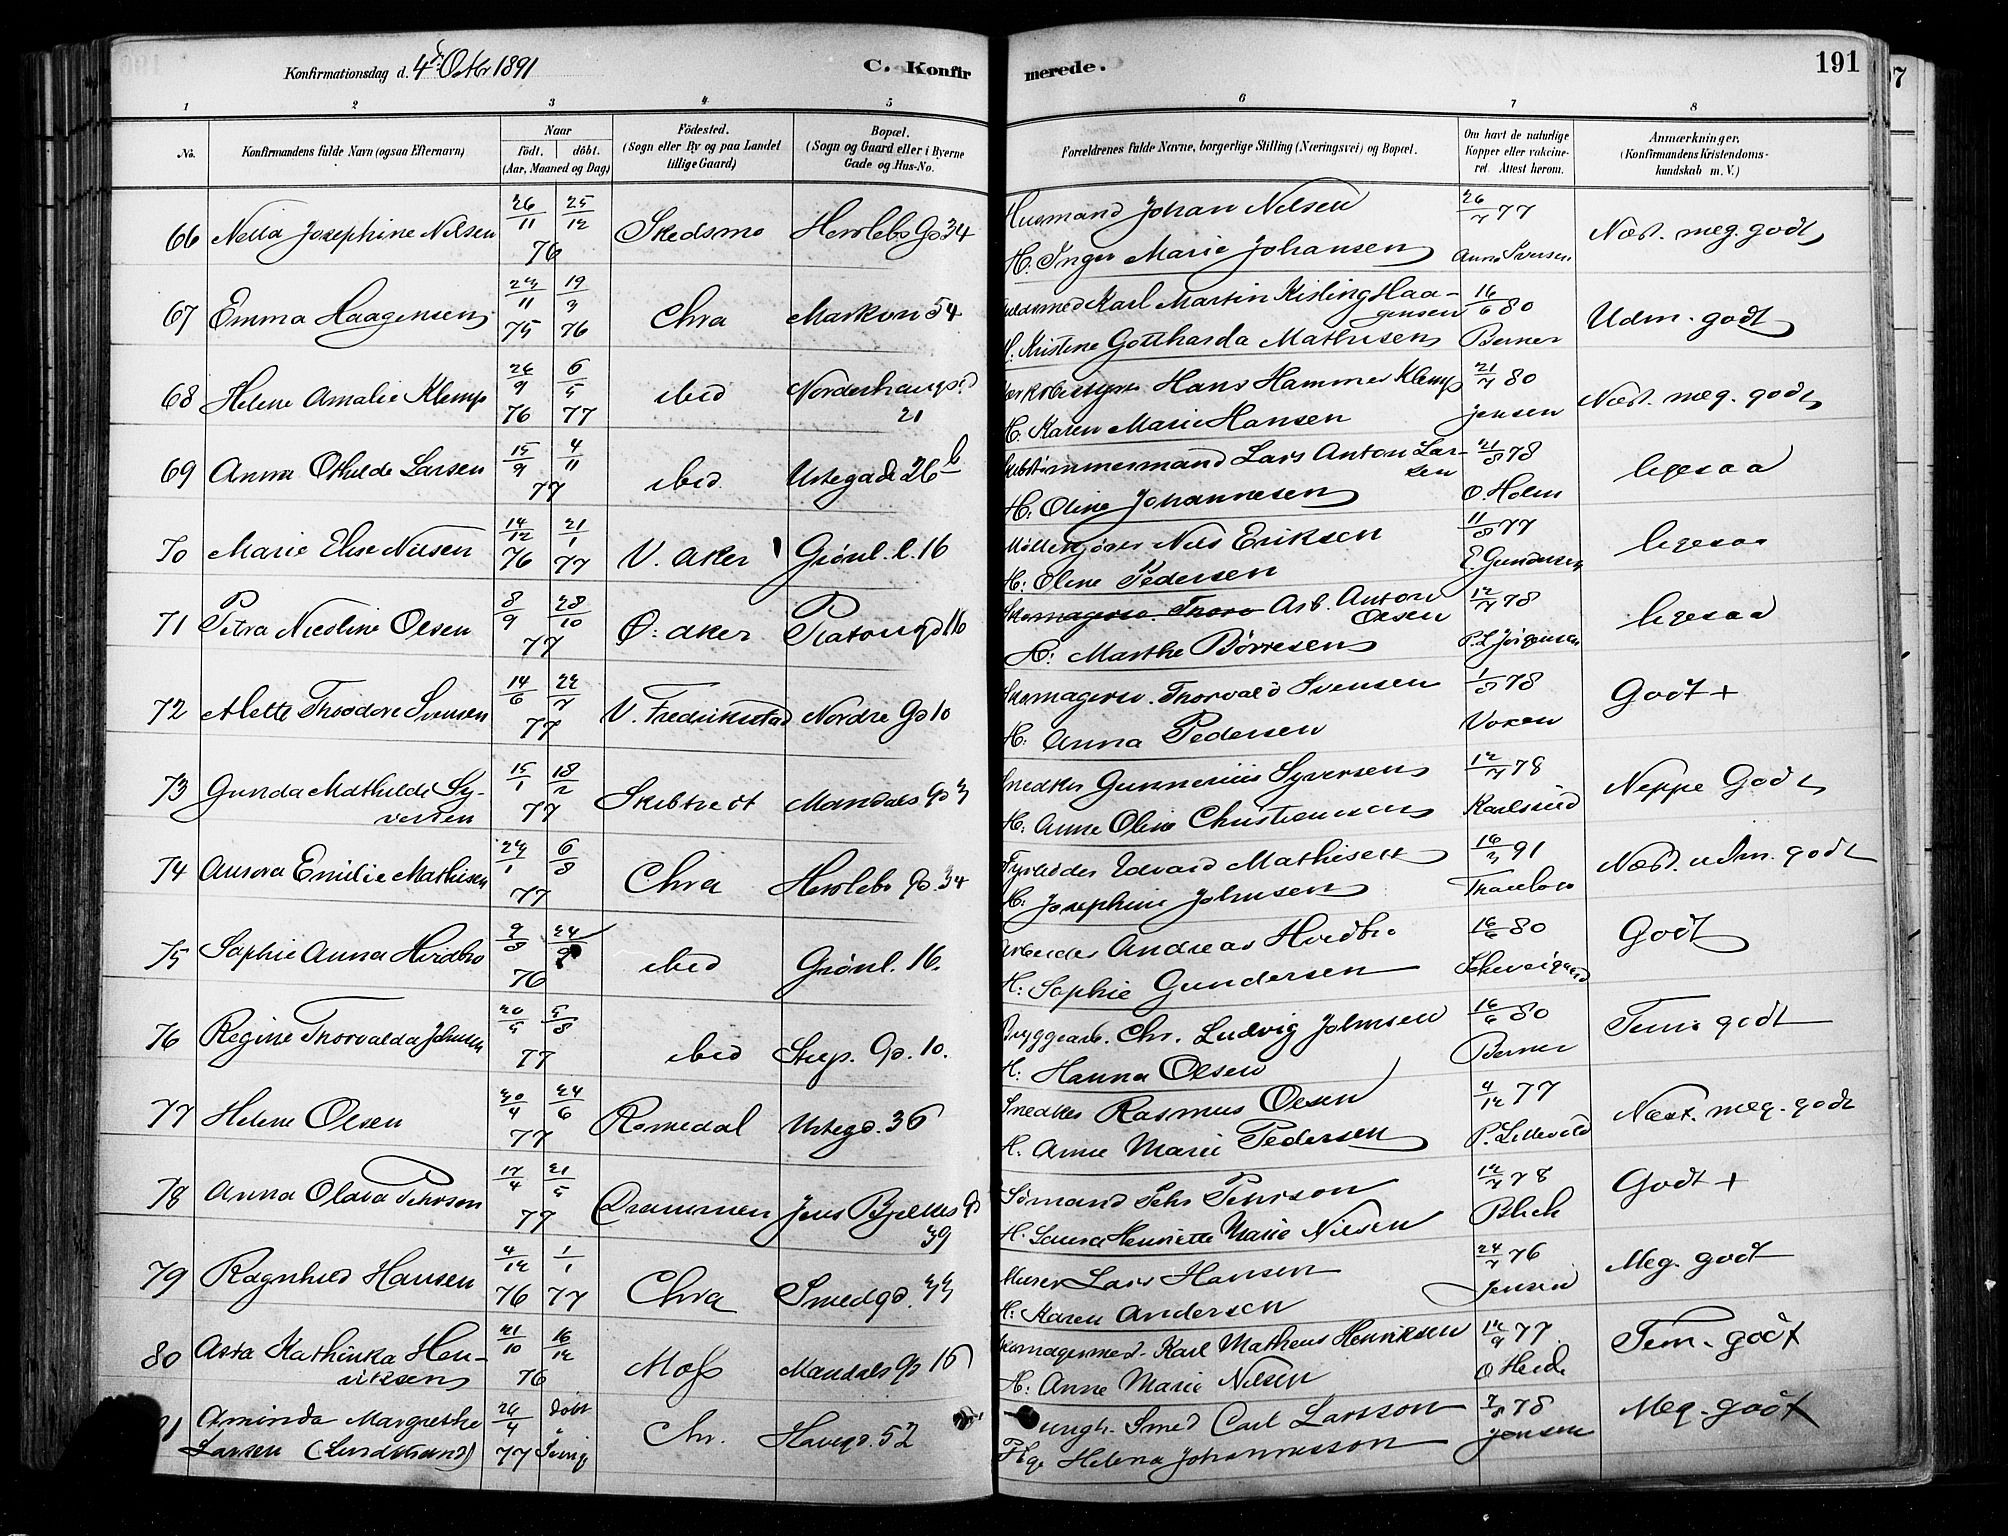 Konfirmationsdag d. 4de Octbr 1891 C. Konfirmerede. 191
1 2 3 4 5 6 7 8
No. Konfirmandens fulde Navn (ogsaa Efternavn) Naar født. døbt. (Aar, Maaned og Dag) Födested. (Sogn eller By og paa Landet tillige Gaard) Bopæl. (Sogn og Gaard eller i Byerne Gade og Hus-No. Forældrenes fulde Navne, borgerlige Stilling (Næringsvei) og Bopæl. Om havt de naturlige Kopper eller vakcineret Attest herom. Anmærkninger. (Konfirmandens Kristendomskundskab m. V.)
66 Nella Josephine Nilsen 26/11 25/12 76 Skedsmo Herslebs Gd 34 Husmand Johan Nilsen 26/7 77 Næst. meg. godt
H: Inger Marie Johansen Anne Iversen
67 Emma Haagensen 29/11 75 19/3 76 Chra Markvn 54 Karl Martin Kisling Haagensen 16/6 80 Udm. godt
H: Kristine Gottharda Mathisen Berner
68 Helene Amalie Klemp 26/9 76 6/5 77 ibid 21 Hans Hammer Klemp 21/7 80 Næst. meg. godt
H: Karen Marie Hansen Jensen
69 Anna Othilde Larsen 15/9 4/11 77 ibid Urtegade 26 b Skibstømmermand Lars Anton Larsen 21/8 78 ligesaa
H: Oline Johannesen O. Holm
70 Marie Elise Nilsen 14/12 76 21/1 77 V. Aker Grønl. l. 16 Nils Eriksen 11/8 77 ligesaa
H: Oline Pedersen E. Gundersen
71 Petra Nicoline Olsen 8/9 28/10 77 Ø: Aker Platougd 16 Arb. Anton Olsen 12/7 78 ligesaa
H: Marthe Børresen P. L. Jørgensen
72 Alette Theodore Svensen 14/6 22/7 77 V. Fredriksstad Nordre Gd 10 Skomagersv. Thorvald Svensen 1/8 78 Godt +
H: Anna Pedersen Voxen
73 Gunda Mathilde Syversen 15/1 18/2 77 Skibtvedt Mandals Gd 3 Snedker Gunnerius Syversen 12/7 78 Neppe Godt
H: Anne Oline Christiansen Karlsrud
74 Aurora Emilie Mathisen 29/1 6/8 77 Chra Herslebs Gd. 34 Fyrbøder Edvard Mathisen 16/3 91 Næst. udm. godt
H: Josephine Johnsen
75 Sophie Anna Hvidbro 9/8 24/9 76 ibid Grønl. 16. Arbeider Andreas Hvidbro 16/6 80 Godt
H: Sophie Gundersen Schweigaard
76 Regine Thorvalda Johnsen 20/5 5/8 77 ibid Step. Gd. 10. Bryggearb. Chr. Ludvig Johnsen 16/6 80 Tem. godt
H: Hanna Olsen Berner
77 Helene Olsen 30/4 24/6 77 Romedal Urtegd. 36 Snedker Rasmus Olsen 4/12 77 Næst. meg. godt
H. Anne Marie Pedersen P. Lillevold
78 Anna Olava Pehrson 17/4 21/5 77 Drammen Jens Bjelkes Gd 39 Sømand Pehr Pehrson 12/7 78 Godt +
H. Laura Henriette Marie Nilsen Blich
79 Ragnhild Hansen 4/12 76 1/1 77 Chra Smedgd. 33 Murer Lars Hansen 24/7 76 Meg. godt
H: Karen Andersen Jensen
80 Asta Kathinka Henriksen 21/10 16/12 76 Moss Mandals Gd 16 Skomagermed. Karl Matheus Henriksen 12/9 77 Tem. godt
H: Anne Marie Nilsen O Heide
1 Aminda Margrethe Larsen (Lundstrand) 26/4 77 døbt i Sverig Chr. Haugd. 52 Ungk. Smed Carl Larsson 7/8 78 Meg. godt
Pge Helena Johannesson Jensen